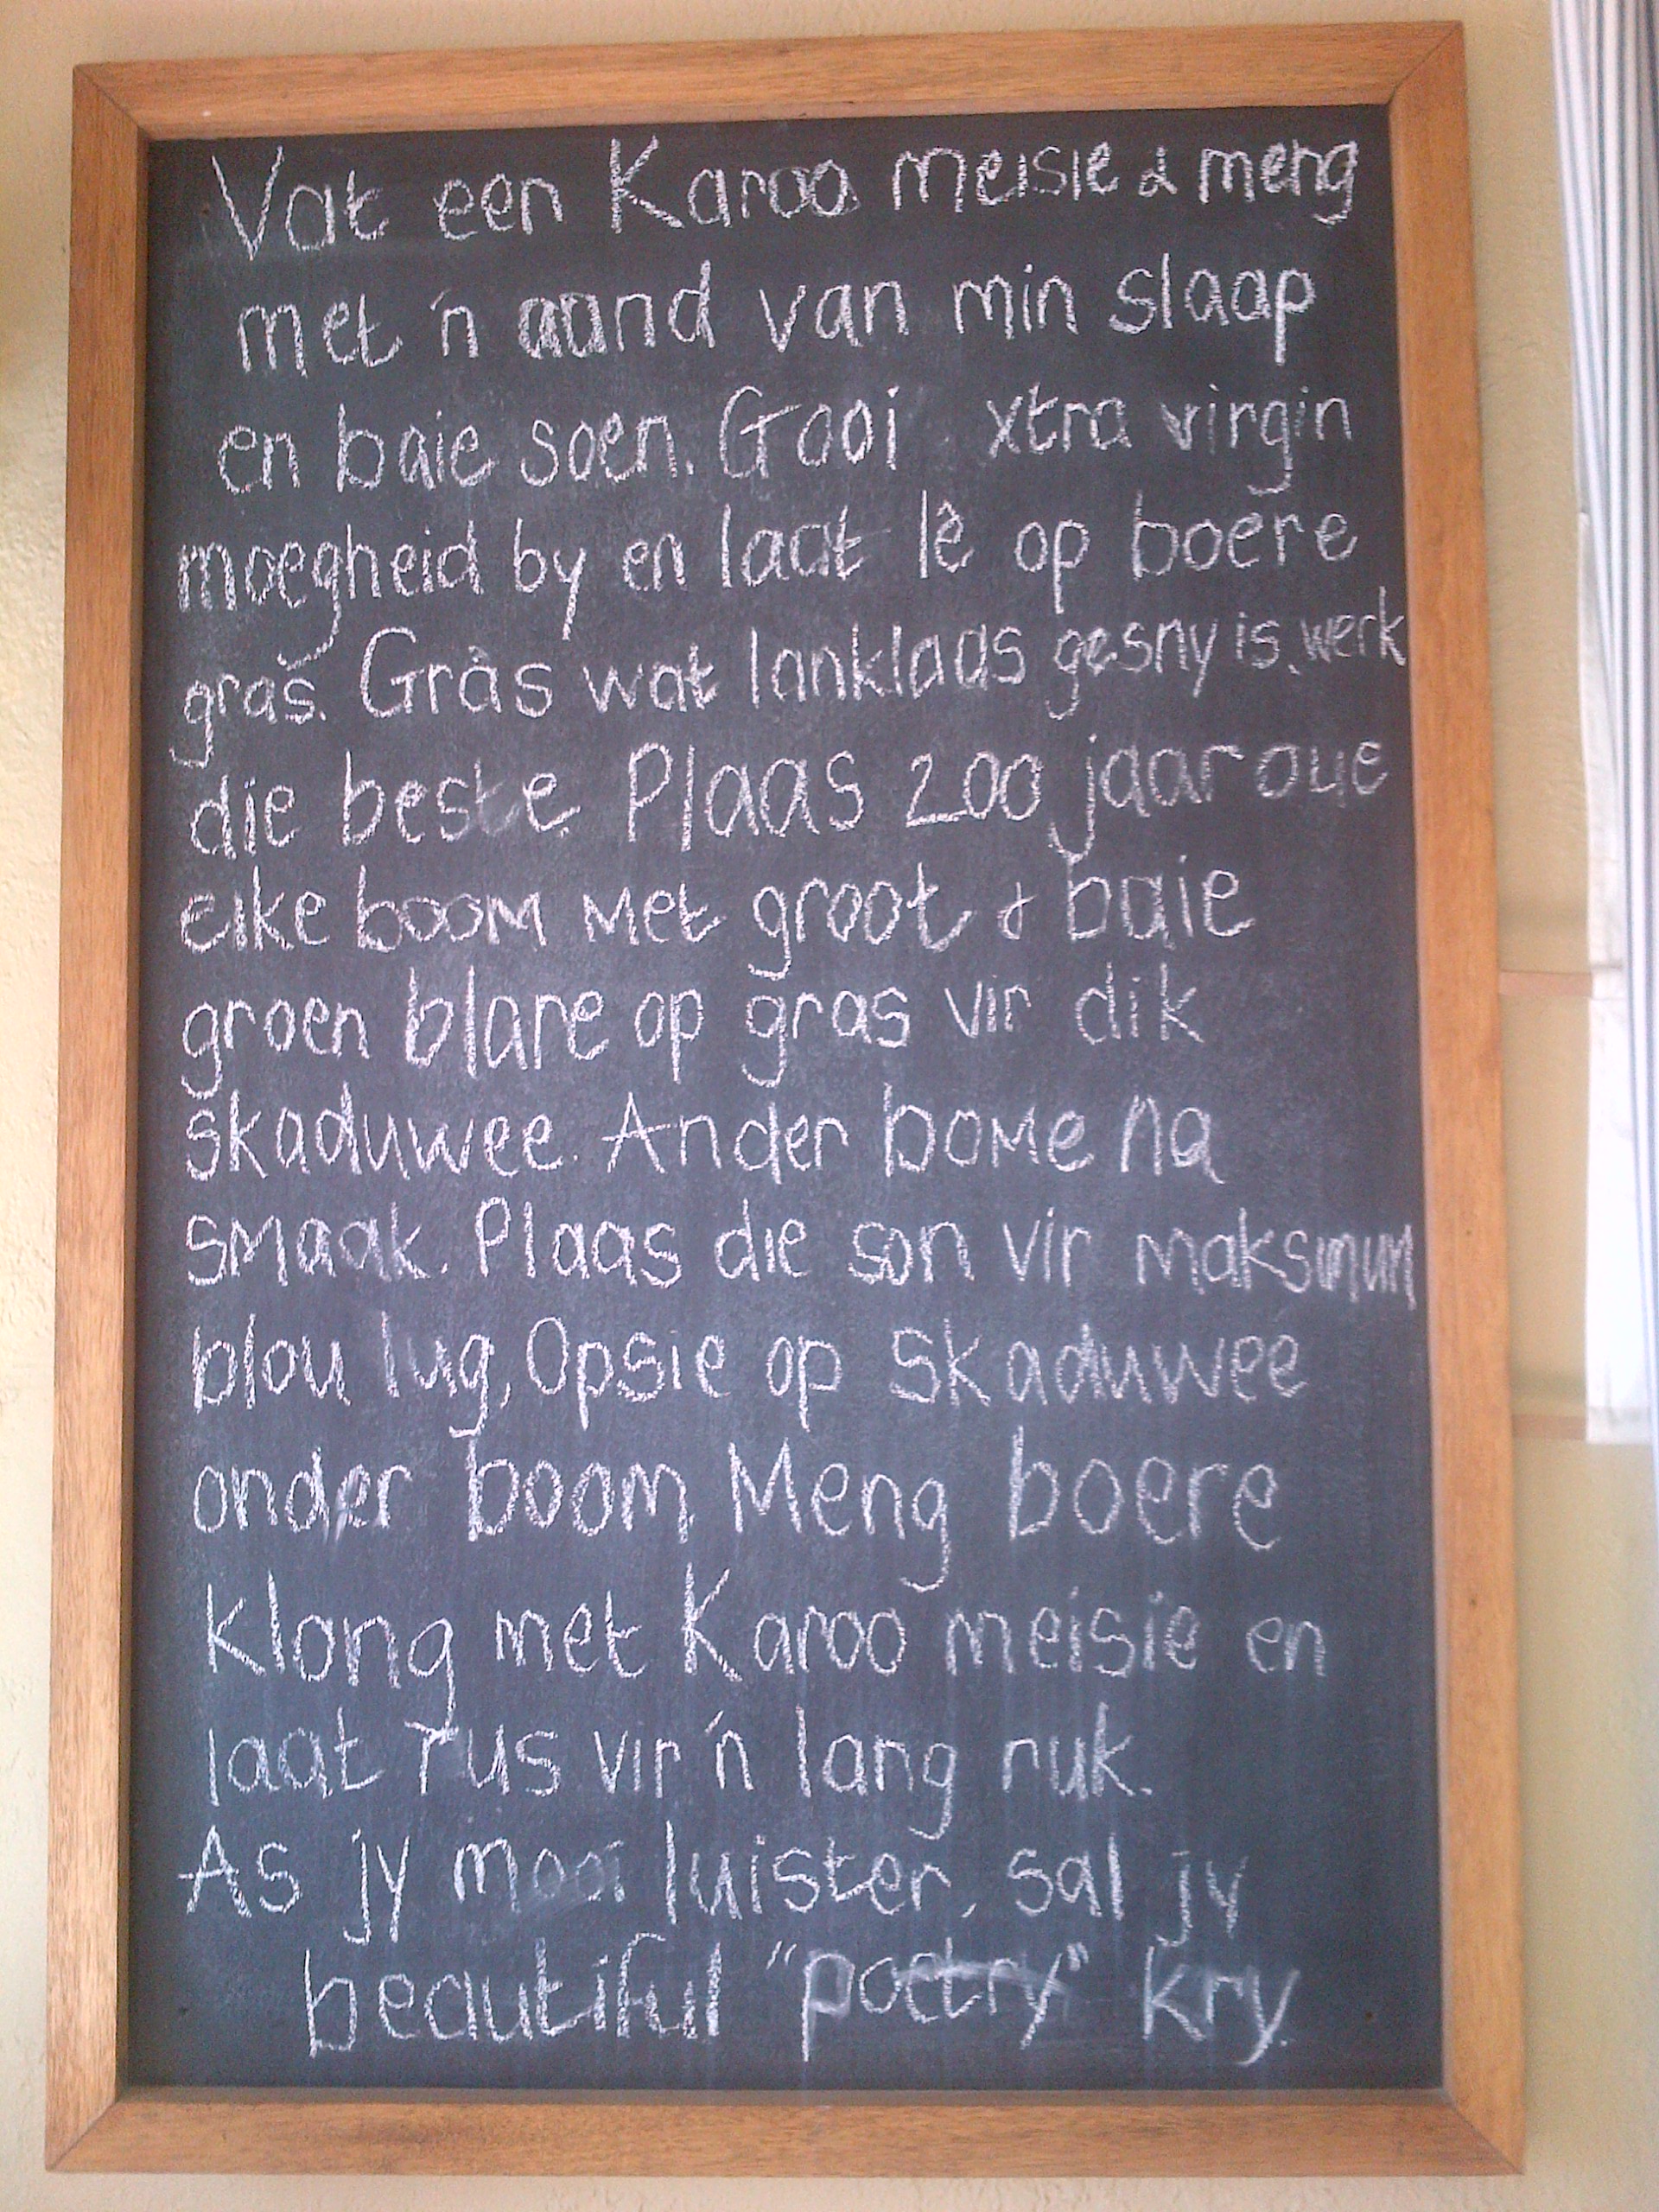 Vat een Karoo meisie & meng
met 'n aand van min slaap
en baie soen. Gooi xtra virgin
moegheid by en laat lê op boere
gras. Gras wat lanklaas gesny is, werk
die beste. Plaas 200 jaar oue
eike boom met groot & baie
groen blare op gras vir dik
skaduwee. Ander bome na
smaak. Plaas die son vir maksimum
blou lug, Opsie op skaduwee
onder boom. Meng boere
klong met Karoo meisie en
laat rus vir 'n lang ruk.
As jy mooi luister, sal jy
beautiful "poetry" kry.